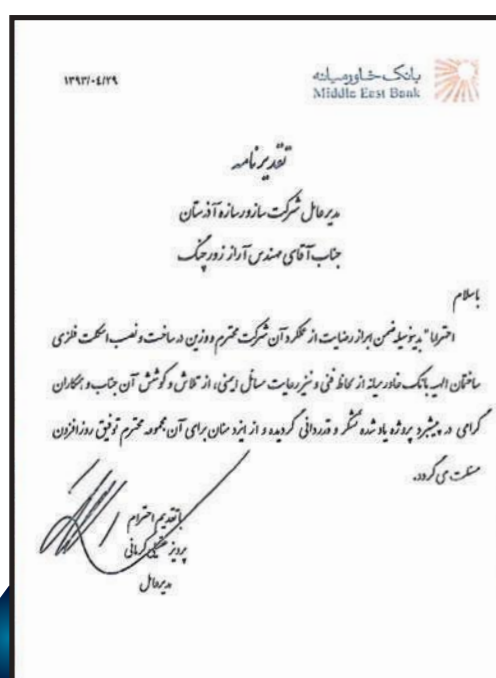 بانک خاورمیانه
Middle East Bank
۱۳۹۳/۰۴/۲۹
تقدیرنامه
مدیرعامل شرکت سازور سازه آذرستان
جناب آقای مهندس آراز زورچنگ
باسلام
احتراما" بدینوسیله ضمن ابراز رضایت از عملکرد آن شرکت محترم و وزین در ساخت و نصب اسکلت فلزی
ساختمان الهیه بانک خاورمیانه از لحاظ فنی و نیز رعایت مسائل ایمنی، از تلاش و کوشش آن جناب و همکاران
گرامی در پیشبرد پروژه یاد شده تشکر و قدردانی گردیده و از ایزد منان برای آن مجموعه محترم توفیق روزافزون
مسئلت می گردد.
باتقدیم احترام
پرویز عقیلی کرمانی
مدیرعامل